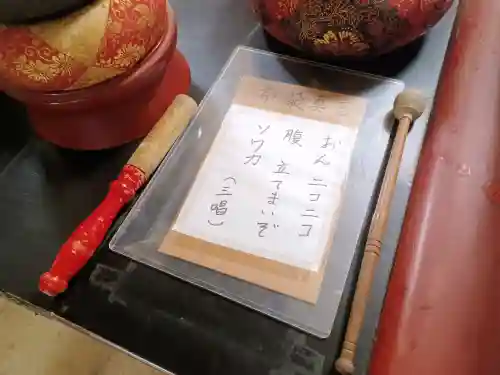 おん ニコニコ
腹 立てまいぞ
ソワカ
(三唱)